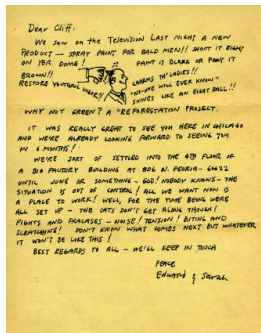 Dear Cliff:
WE SAW ON THE TELEVISION LAST NIGHT A NEW
PRODUCT — SPRAY PAINT FOR BALD MEN!! SHOOT IT RIGHT
ON YOUR DOME! PAINT IS BLACK OR
BROWN!!
RESTORE YOUTHFUL VIGOR!!
CHARMS TH' LADIES!!
"NO-ONE WILL EVER KNOW"
SHINES LIKE AN EIGHT BALL!!
WHY NOT GREEN? A "REFORESTATION PROJECT.
IT WAS REALLY GREAT TO SEE YOU HERE IN CHICAGO
AND WE'RE ALREADY LOOKING FORWARD TO SEEING YOU
IN 6 MONTHS!
WE'RE SORT OF SETTLED INTO THE 4TH FLOOR OF
A BIG FACTORY BUILDING AT 806 N. PEORIA - 60622
UNTIL JUNE OR SOMETHING - GOD! NOBODY KNOWS - THE
SITUATION IS OUT OF CONTROL! ALL WE WANT NOW IS
A PLACE TO WORK! WELL, FOR THE TIME BEING WE'RE
ALL SET UP - THE CATS DON'T GET ALONG THOUGH!
FIGHTS AND FRACASES - NOISE! TENSION! BITING AND
SCRATCHING! DON'T KNOW WHAT COMES NEXT BUT WHATEVER
IT WON'T BE LIKE THIS!
BEST REGARDS TO ALL - WE'LL KEEP IN TOUCH
PEACE
EDWARD & Sarah